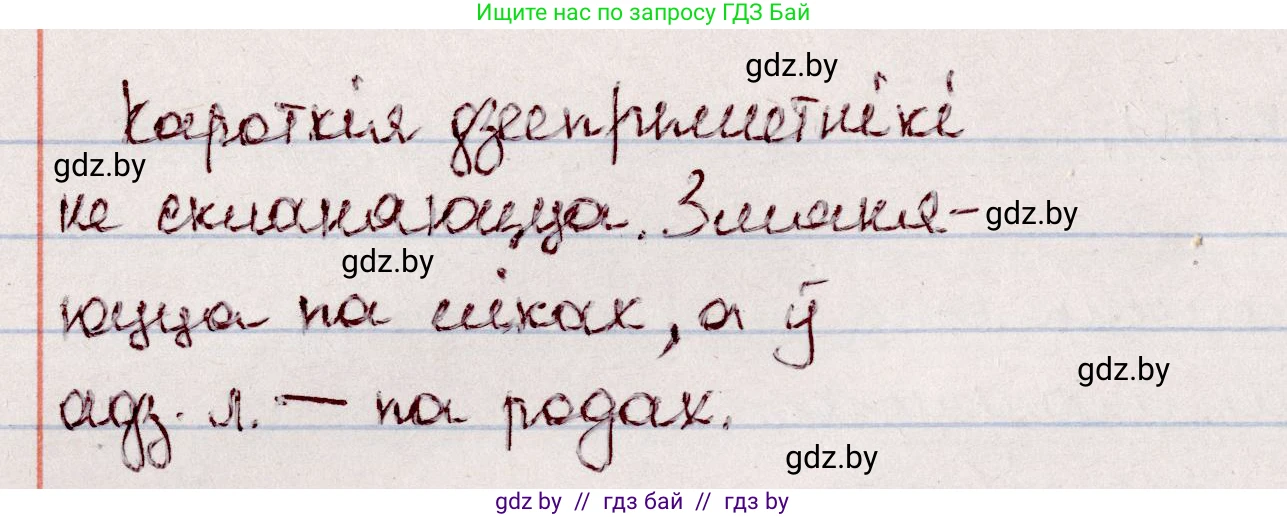 Ищите нас по запросу ГДЗ Бай
gdz.by
Кароткія дзеепрыметнікі
gdz.by
не скланяюцца. Змяня-
gdz.by
gdz.by
юцца па ліках, а ў
gdz.by
адз. л. — па родах.
gdz.by
gdz by // гдз бай // гдз by